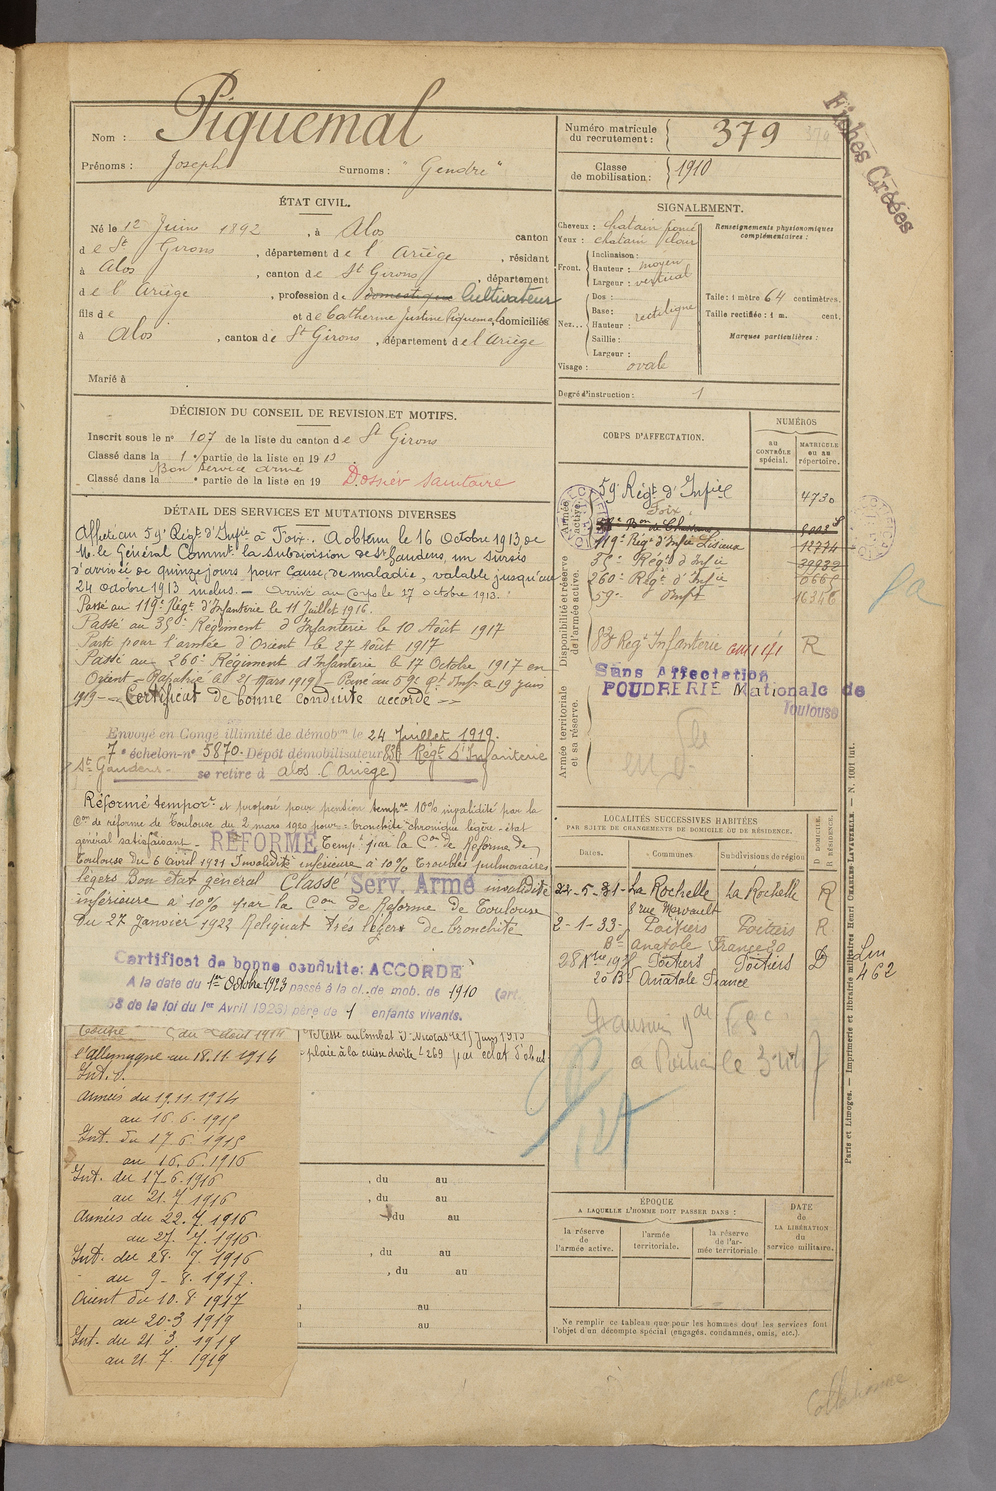 Nom : Piquemal
Prénoms : Joseph Surnoms : "Gendre"
Numéro matricule du recrutement : 379
Classe de mobilisation : 1910
Fiches Créées
ÉTAT CIVIL.
Né le 12 Juin 1892, à Alos canton
de St Girons, département de l'Ariège, résidant
à Alos, canton de St Girons, département
de l'Ariège, profession de domestique Cultivateur
fils de et de Catherine Justine Piquemal domiciliés
à Alos, canton de St Girons, département de l'Ariège
Marié à
SIGNALEMENT.
Cheveux : chatain foncé
Yeux : chatain clair
Front. Inclinaison :
Hauteur : moyen
Largeur : vertical
Nez... Dos :
Base : rectiligne
Hauteur :
Saillie :
Largeur :
Visage : ovale
Renseignements physionomiques complémentaires :
Taille : 1 mètre 64 centimètres.
Taille rectifiée : 1 m. cent.
Marques particulières :
Degré d'instruction : 1
DÉCISION DU CONSEIL DE REVISION ET MOTIFS.
Inscrit sous le n° 107 de la liste du canton de St Girons
Classé dans la 1e partie de la liste en 1913
Bon service armé
Classé dans la e partie de la liste en 19 Dossier sanitaire
DÉTAIL DES SERVICES ET MUTATIONS DIVERSES
Affecté au 59e Régt d'Infie à Foix. A obtenu le 16 Octobre 1913 de
M. le Général Commt la subdivision de St Gaudens, un sursis
d'arrivée de quinze jours pour cause de maladie, valable jusqu'au
24 Octobre 1913 inclus. - Arrivé au Corps le 17 octobre 1913.
Passé au 119e Régt d'Infanterie le 11 Juillet 1916.
Passé au 35e Régiment d'Infanterie le 10 Août 1917
Parti pour l'armée d'Orient le 27 Août 1917
Passé au 260e Régiment d'Infanterie le 17 Octobre 1917 en
Orient - Rapatrié le 21 Mars 1919 - Passé au 59e Rt Inf. le 19 juin
1919 - Certificat de bonne conduite accordé
Envoyé en Congé illimité de démobon le 24 Juillet 1919.
7e échelon - n° 5870. Dépôt démobilisateur 83e Régt d'Infanterie
St Gaudens - se retire à Alos (Ariège)
Réformé tempore et proposé pour pension tempre 10% invalidité par la
Con de réforme de Toulouse du 2 mars 1920 pour : bronchite chronique légère - état
général satisfaisant - RÉFORMÉ Temp. par la Con de Réforme de
Toulouse du 6 Avril 1921 Invalidité inférieure à 10% Troubles pulmonaires
légers Bon état général Classé Serv. Armé invalidité
inférieure à 10% par la Con de Réforme de Toulouse
du 27 Janvier 1922 Reliquat très léger de bronchite
Certificat de bonne conduite : ACCORDÉ
A la date du 1er Octobre 1923 passé à la cl. de mob. de 1910 (art.
58 de la loi du 1er Avril 1923) père de 1 enfants vivants.
Blessé au combat St Nicolas le 15 Juin 1915
plaie à la cuisse droite par éclat d'obus
Coupé du 2 août 1914
l'Allemagne au 18.11.1914
Int. d.
Armées du 19.11.1914
au 16.6.1915
Int. du 17.6.1915
au 16.6.1916
Int. du 17.6.1916
au 21.7.1916
Armées du 22.7.1916
au 27.7.1916
Int. du 28.7.1916
au 9-8.1917.
Orient du 10.8.1917
au 20-3 1919
Int. du 21.3.1919
au 21.7.1919
, du au
, du au
, du au
, du au
, du au
au
au
CORPS D'AFFECTATION.
NUMÉROS
au CONTRÔLE spécial.
MATRICULE ou au répertoire.
Armée active.
59e Régt d'Infie 4730
Foix.
119e Régt d'Infie Lisieux 12774
Disponibilité et réserve de l'armée active.
35e Régt d'Infie
260e Régt d'Infie
59e d'Infie
83e Regt Infanterie R
Sans Affectation
POUDRERIE Nationale de
Toulouse
Armée territoriale et sa réserve.
LOCALITÉS SUCCESSIVES HABITÉES
PAR SUITE DE CHANGEMENTS DE DOMICILE OU DE RÉSIDENCE.
Dates. Communes Subdivisions de région D. DOMICILE. R. RÉSIDENCE.
22-5-31 - La Rochelle La Rochelle R
8 rue
2-1-33 - Poitiers Poitiers R
Bd Anatole France
Poitiers Poitiers D
20 Bd Anatole France
462
ÉPOQUE
A LAQUELLE L'HOMME DOIT PASSER DANS :
la réserve de l'armée active.
l'armée territoriale.
la réserve de l'armée territoriale
DATE de LA LIBÉRATION du service militaire.
Ne remplir ce tableau que pour les hommes dont les services font
l'objet d'un décompte spécial (engagés, condamnés, omis, etc.).
Paris et Limoges. — Imprimerie et librairie militaires Henri CHARLES-LAVAUZELLE. — N. 1001 int.